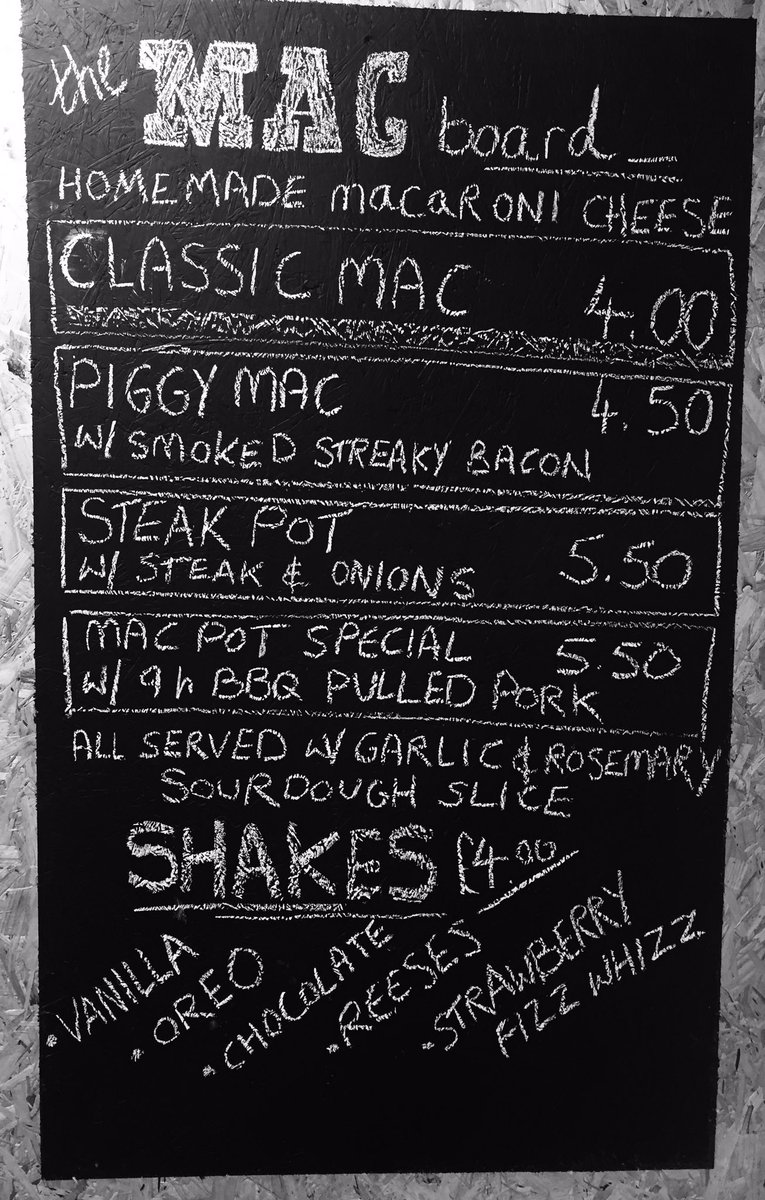 the MAC board
HOMEMADE macaRONI CHEESE
CLASSIC MAC 4.00
PIGGY MAC 4.50
W/ SMOKED STREAKY BACON
STEAK POT 5.50
W/ STEAK & ONIONS
MAC POT SPECIAL 5.50
W/ 9h BBQ PULLED PORK
ALL SERVED W/ GARLIC & ROSEMARY
SOURDOUGH SLICE
SHAKES £4.00
• VANILLA
• OREO
• CHOCOLATE
• REESES
• STRAWBERRY
FIZZ WHIZZ